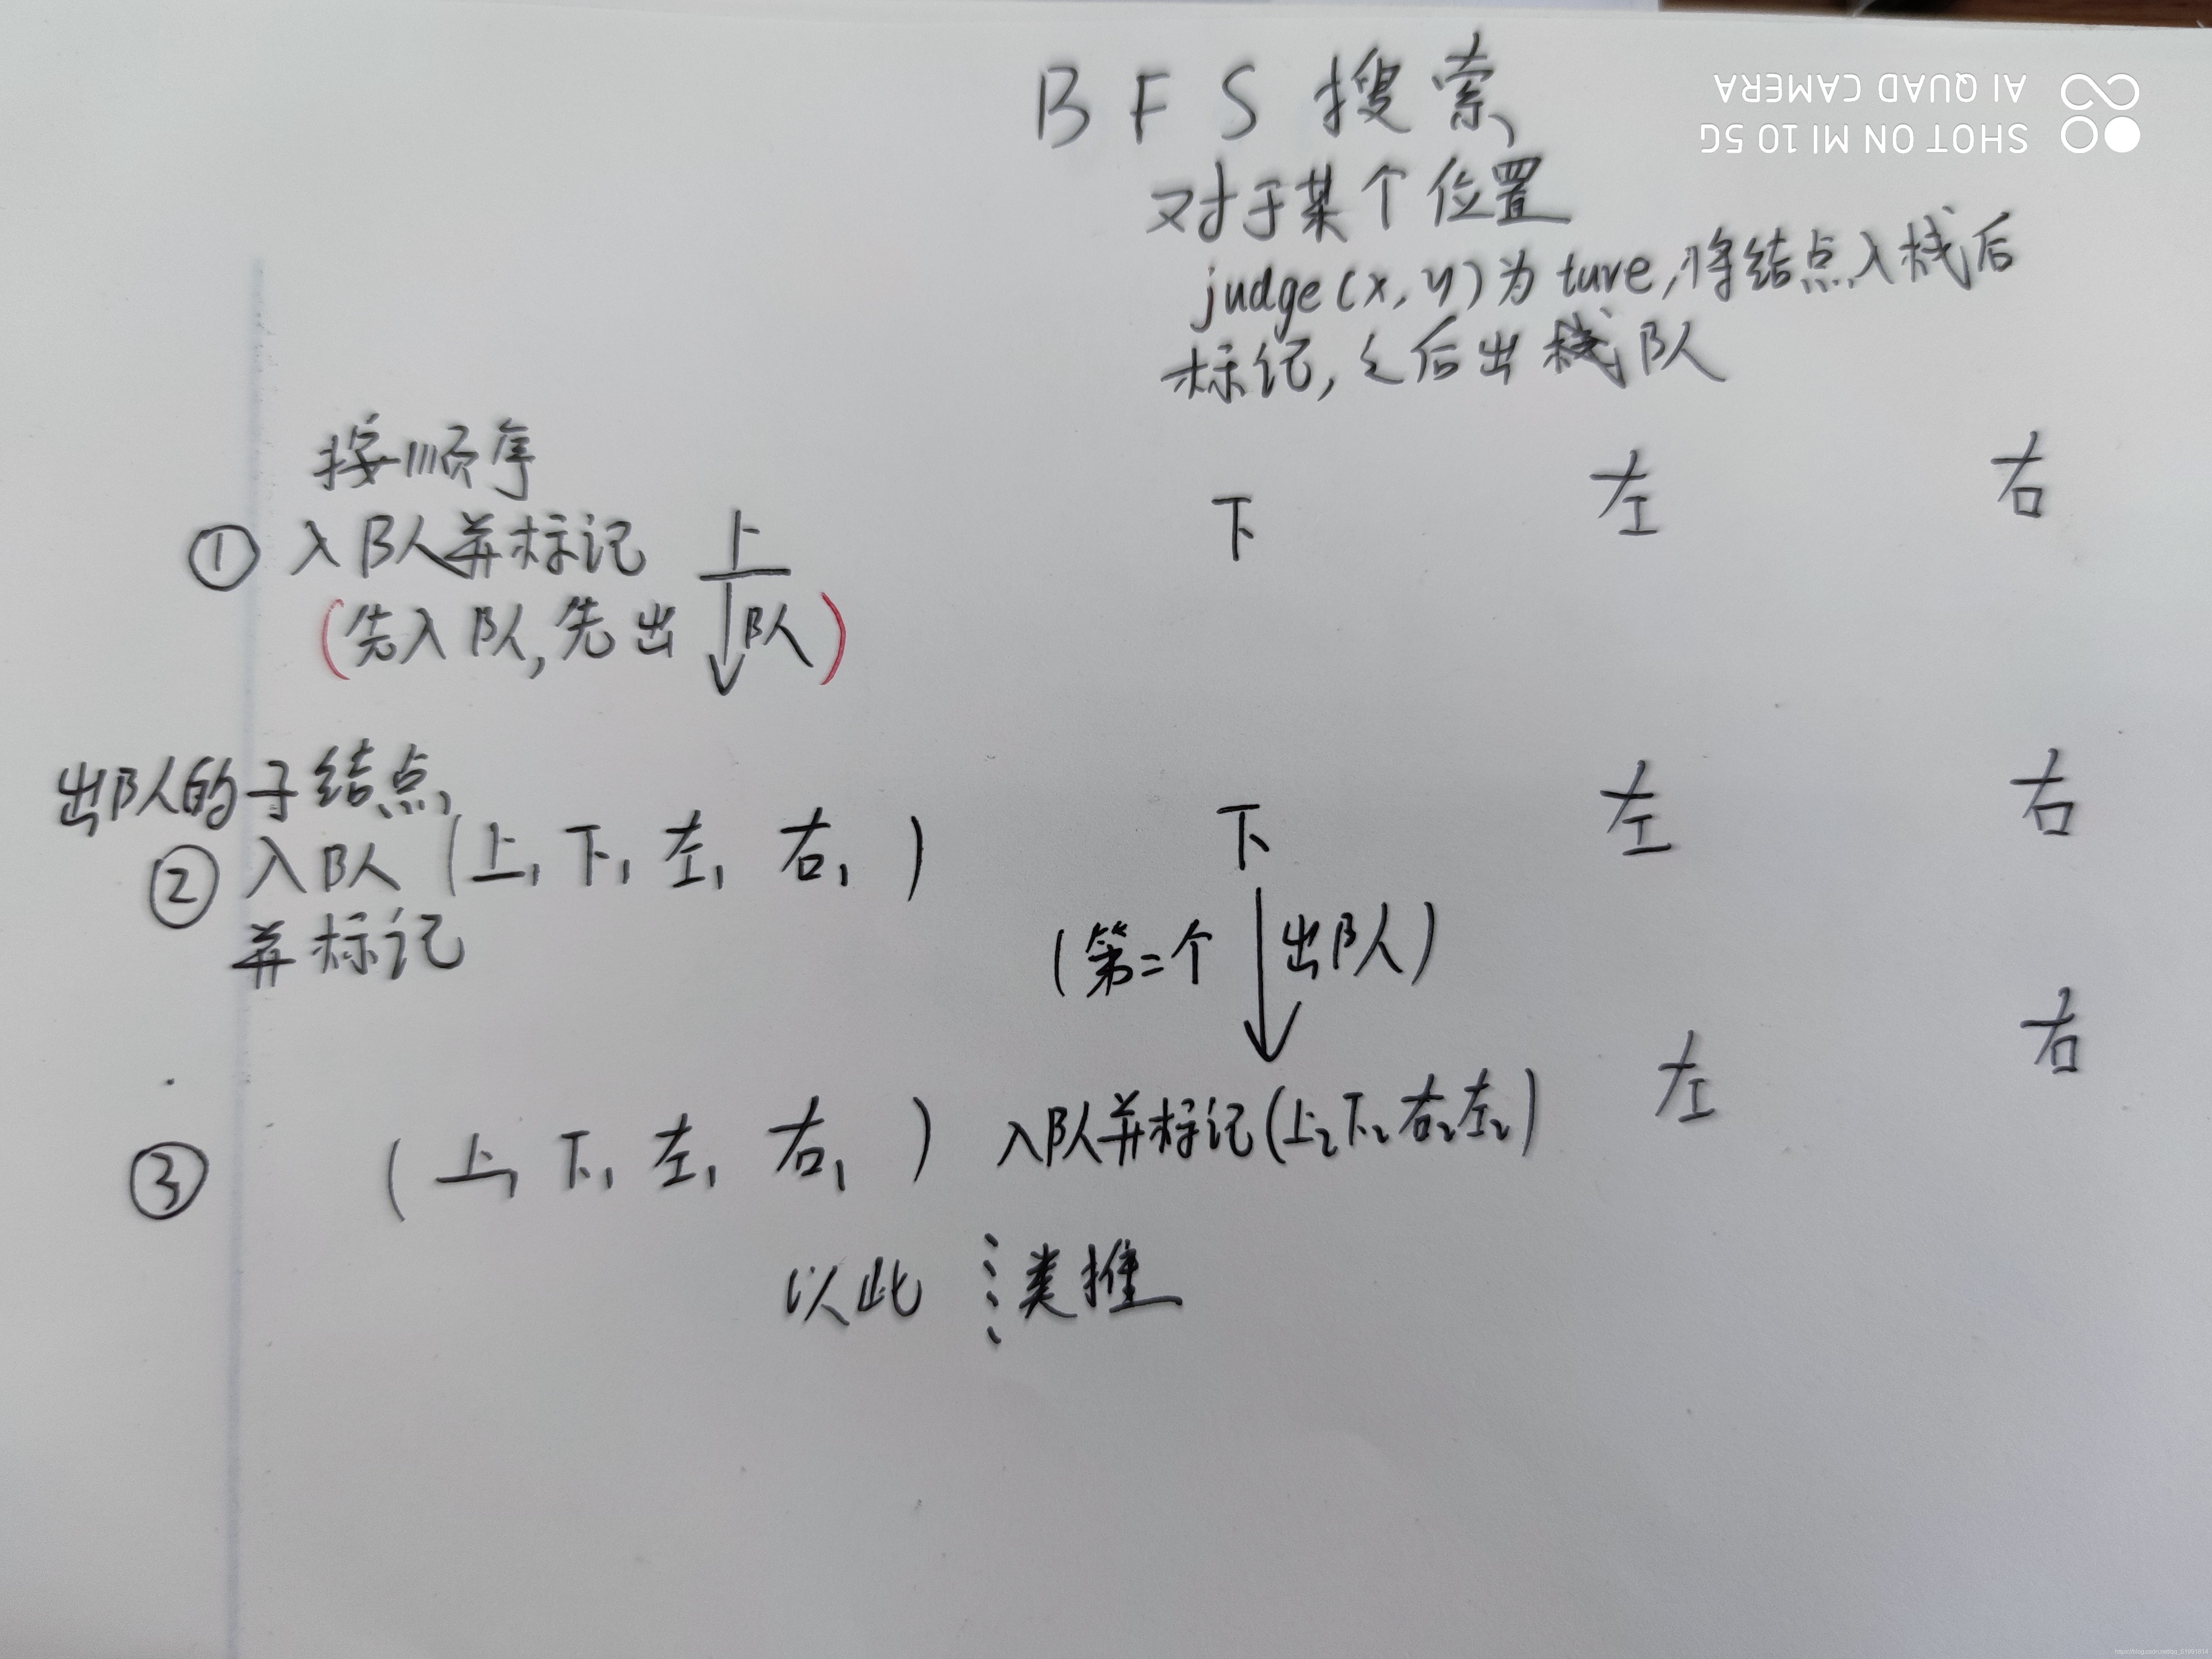 BFS搜索
对于某个位置
judge(x,y)为ture,将结点入栈后
标记,之后出栈队
SHOT ON MI 10 5G
AI QUAD CAMERA
按顺序
① 入队并标记 上 下 左 右
(先入队,先出队)
出队的子结点
② 入队 (上₁ 下₁ 左₁ 右₁) 下 左 右
并标记
(第二个出队)
③ (上₁ 下₁ 左₁ 右₁) 入队并标记(上₂下₂右₂左₂) 左 右
以此类推